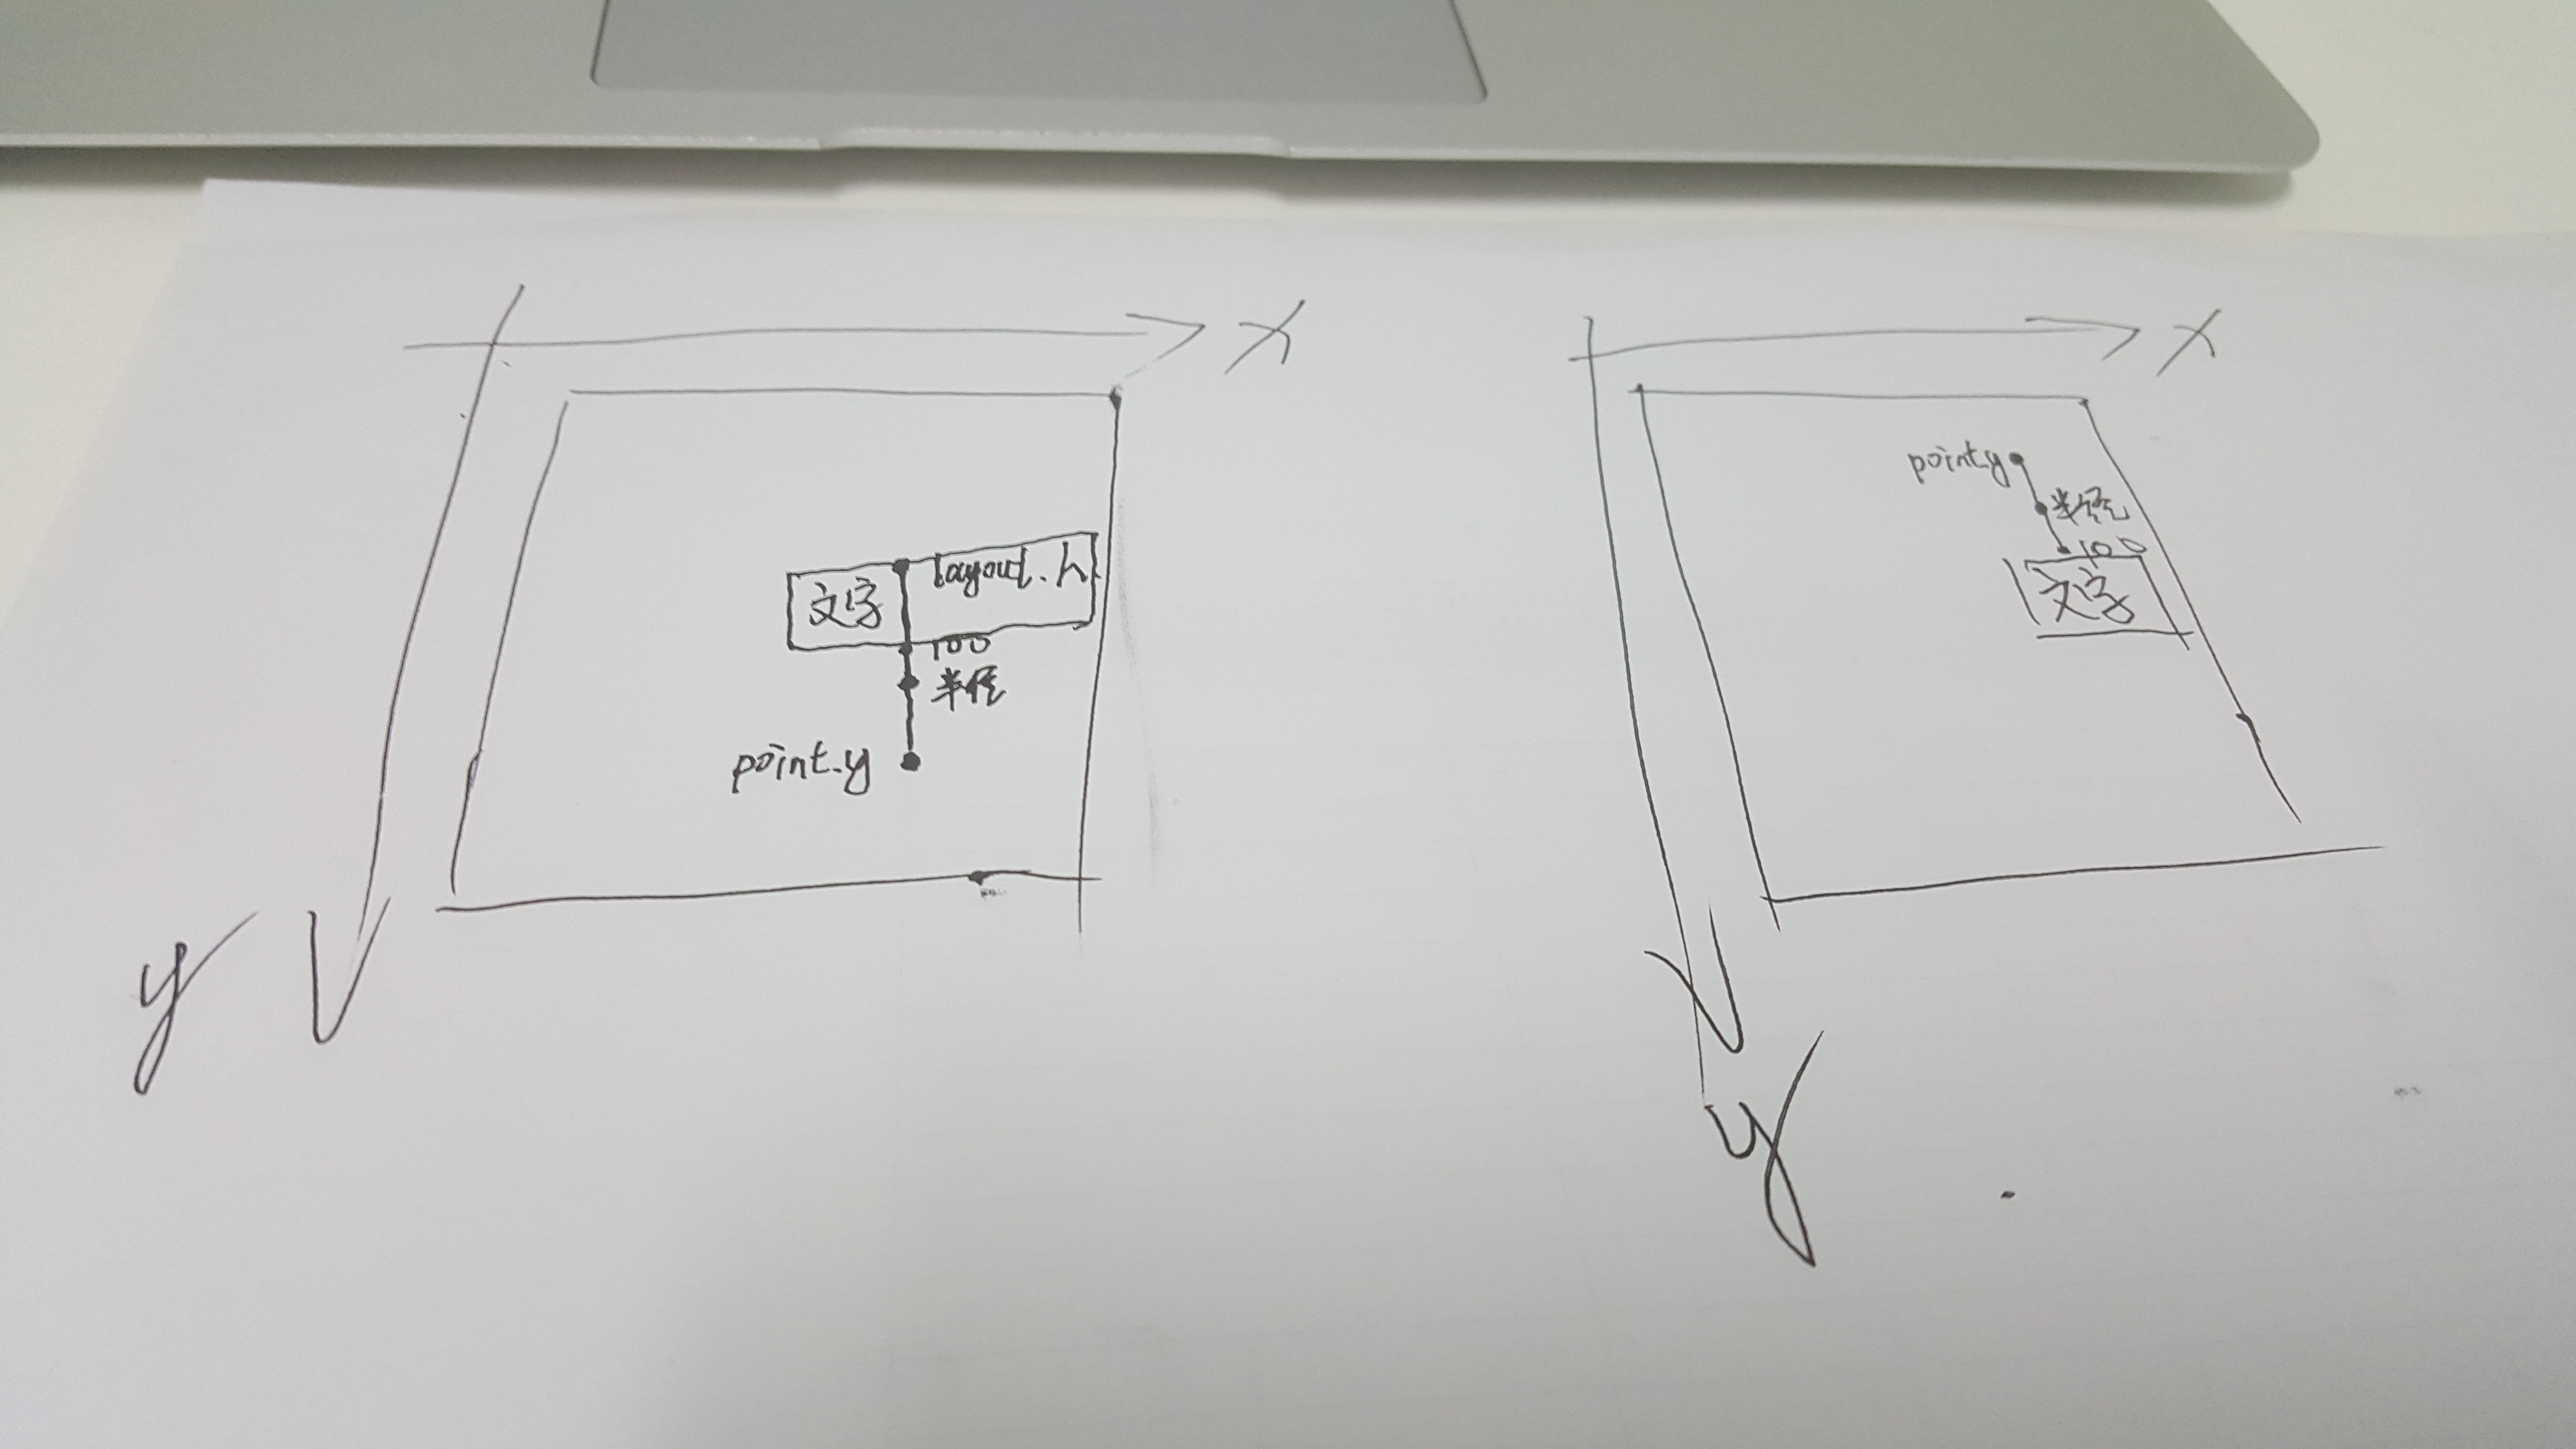 x
文字
layout.h
100
半径
point.y
y
x
point.y
半径
100
文字
y